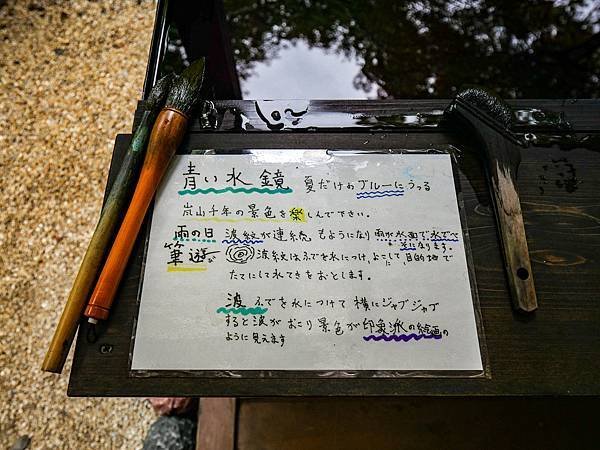 青い水鏡 夏だけがブルーにうつる
嵐山千年の景色を楽しんで下さい。
雨の日 波紋が連続もようになり雨が水面で水でべ
そになります。
筆遊 波紋はふでを水につけ よこにして 目的地で
たてにして水てきをおとします。
波 ふでを水につけて 横にジャブジャブ
すると波がおこり景色が印象派の絵画の
ように見えます